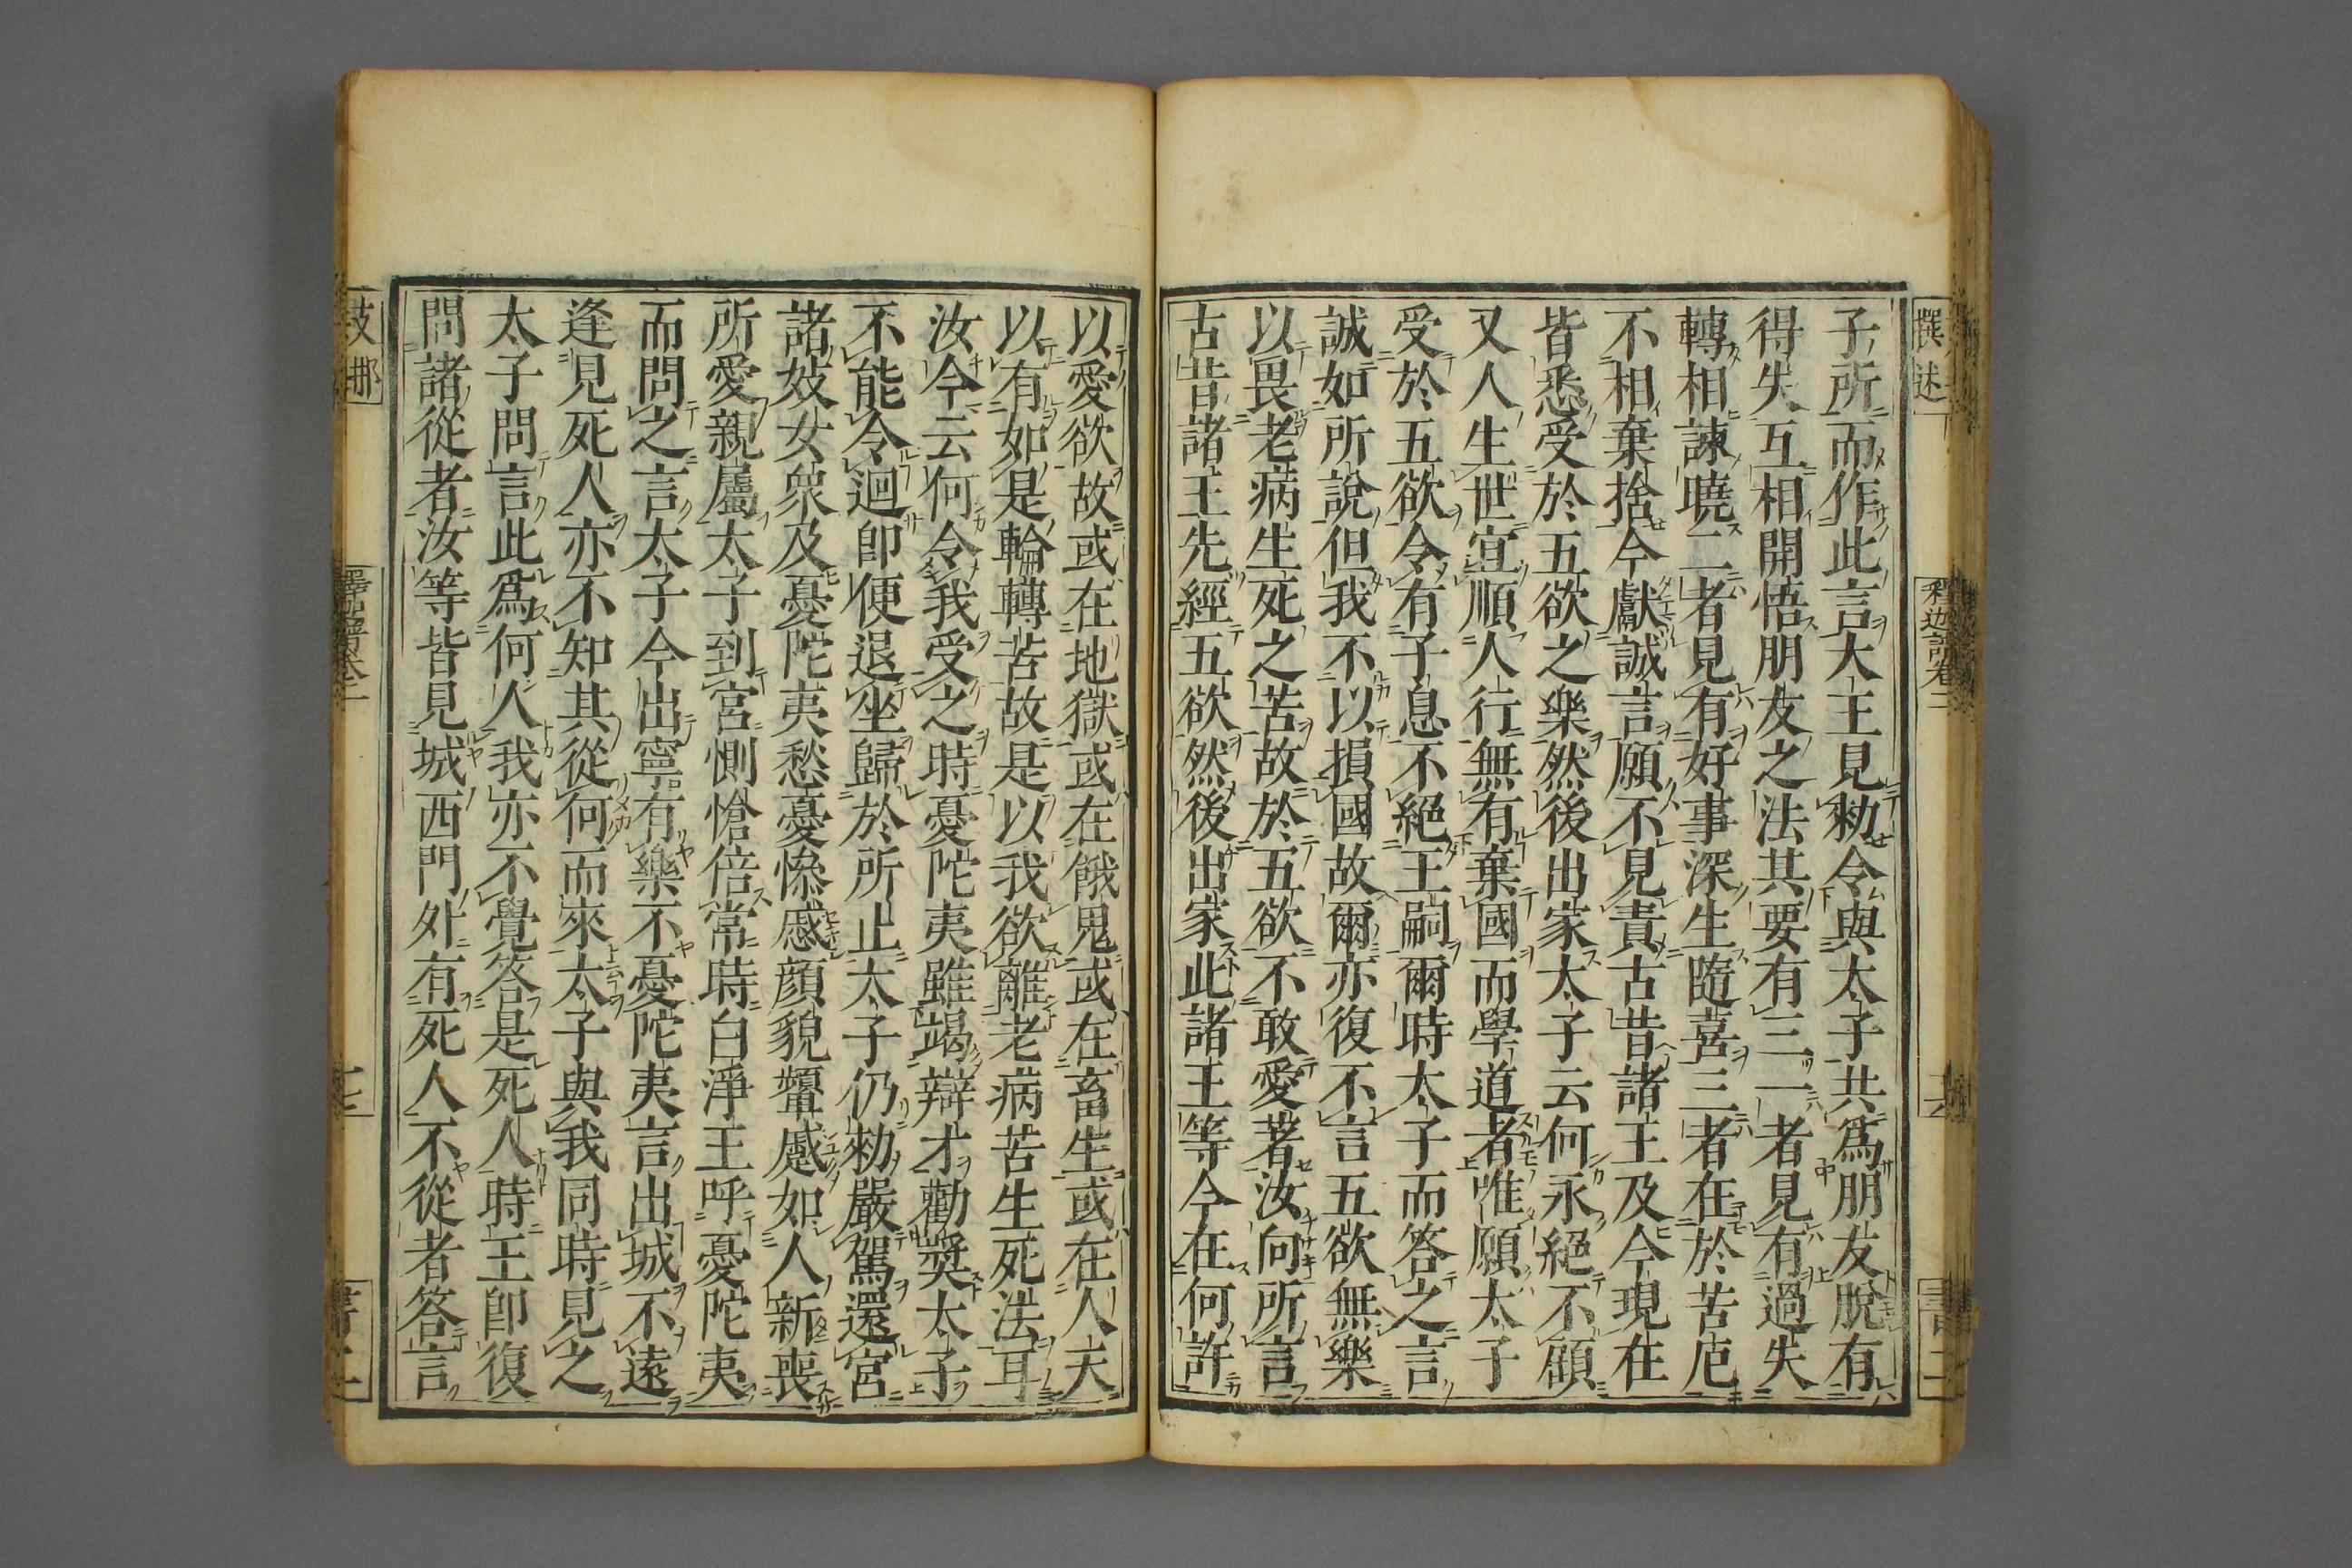 撰述
釋迦譜卷二
六
子所而作此言大王見勑令與太子共爲朋友脫有
得失互相開悟朋友之法其要有三一者見有過失
轉相諫曉二者見有好事深生隨喜三者在於苦厄
不相棄捨今獻誠言願不見責古昔諸王及今現在
皆悉受於五欲之樂然後出家太子云何永絕不顧
又人生世宜順人行無有棄國而學道者唯願太子
受於五欲令有子息不絕王嗣爾時太子而答之言
誠如所說但我不以損國故爾亦復不言五欲無樂
以畏老病生死之苦故於五欲不敢愛著汝向所言
古昔諸王先經五欲然後出家此諸王等今在何許
以愛欲故或在地獄或在餓鬼或在畜生或在人天
以有如是輪轉苦故是以我欲離老病苦生死法耳
汝今云何令我受之時憂陀夷雖竭辯才勸奬太子
不能令迴卽便退坐歸於所止太子仍勑嚴駕還宮
諸妓女衆及憂陀夷愁憂慘慼顏貌顰蹙如人新喪
所愛親屬太子到宮惻愴倍常時白淨王呼憂陀夷
而問之言太子今出寧有樂不憂陀夷言出城不遠
逢見死人亦不知其從何而來太子與我同時見之
太子問言此爲何人我亦不覺答是死人時王卽復
問諸從者汝等皆見城西門外有死人不從者答言
七